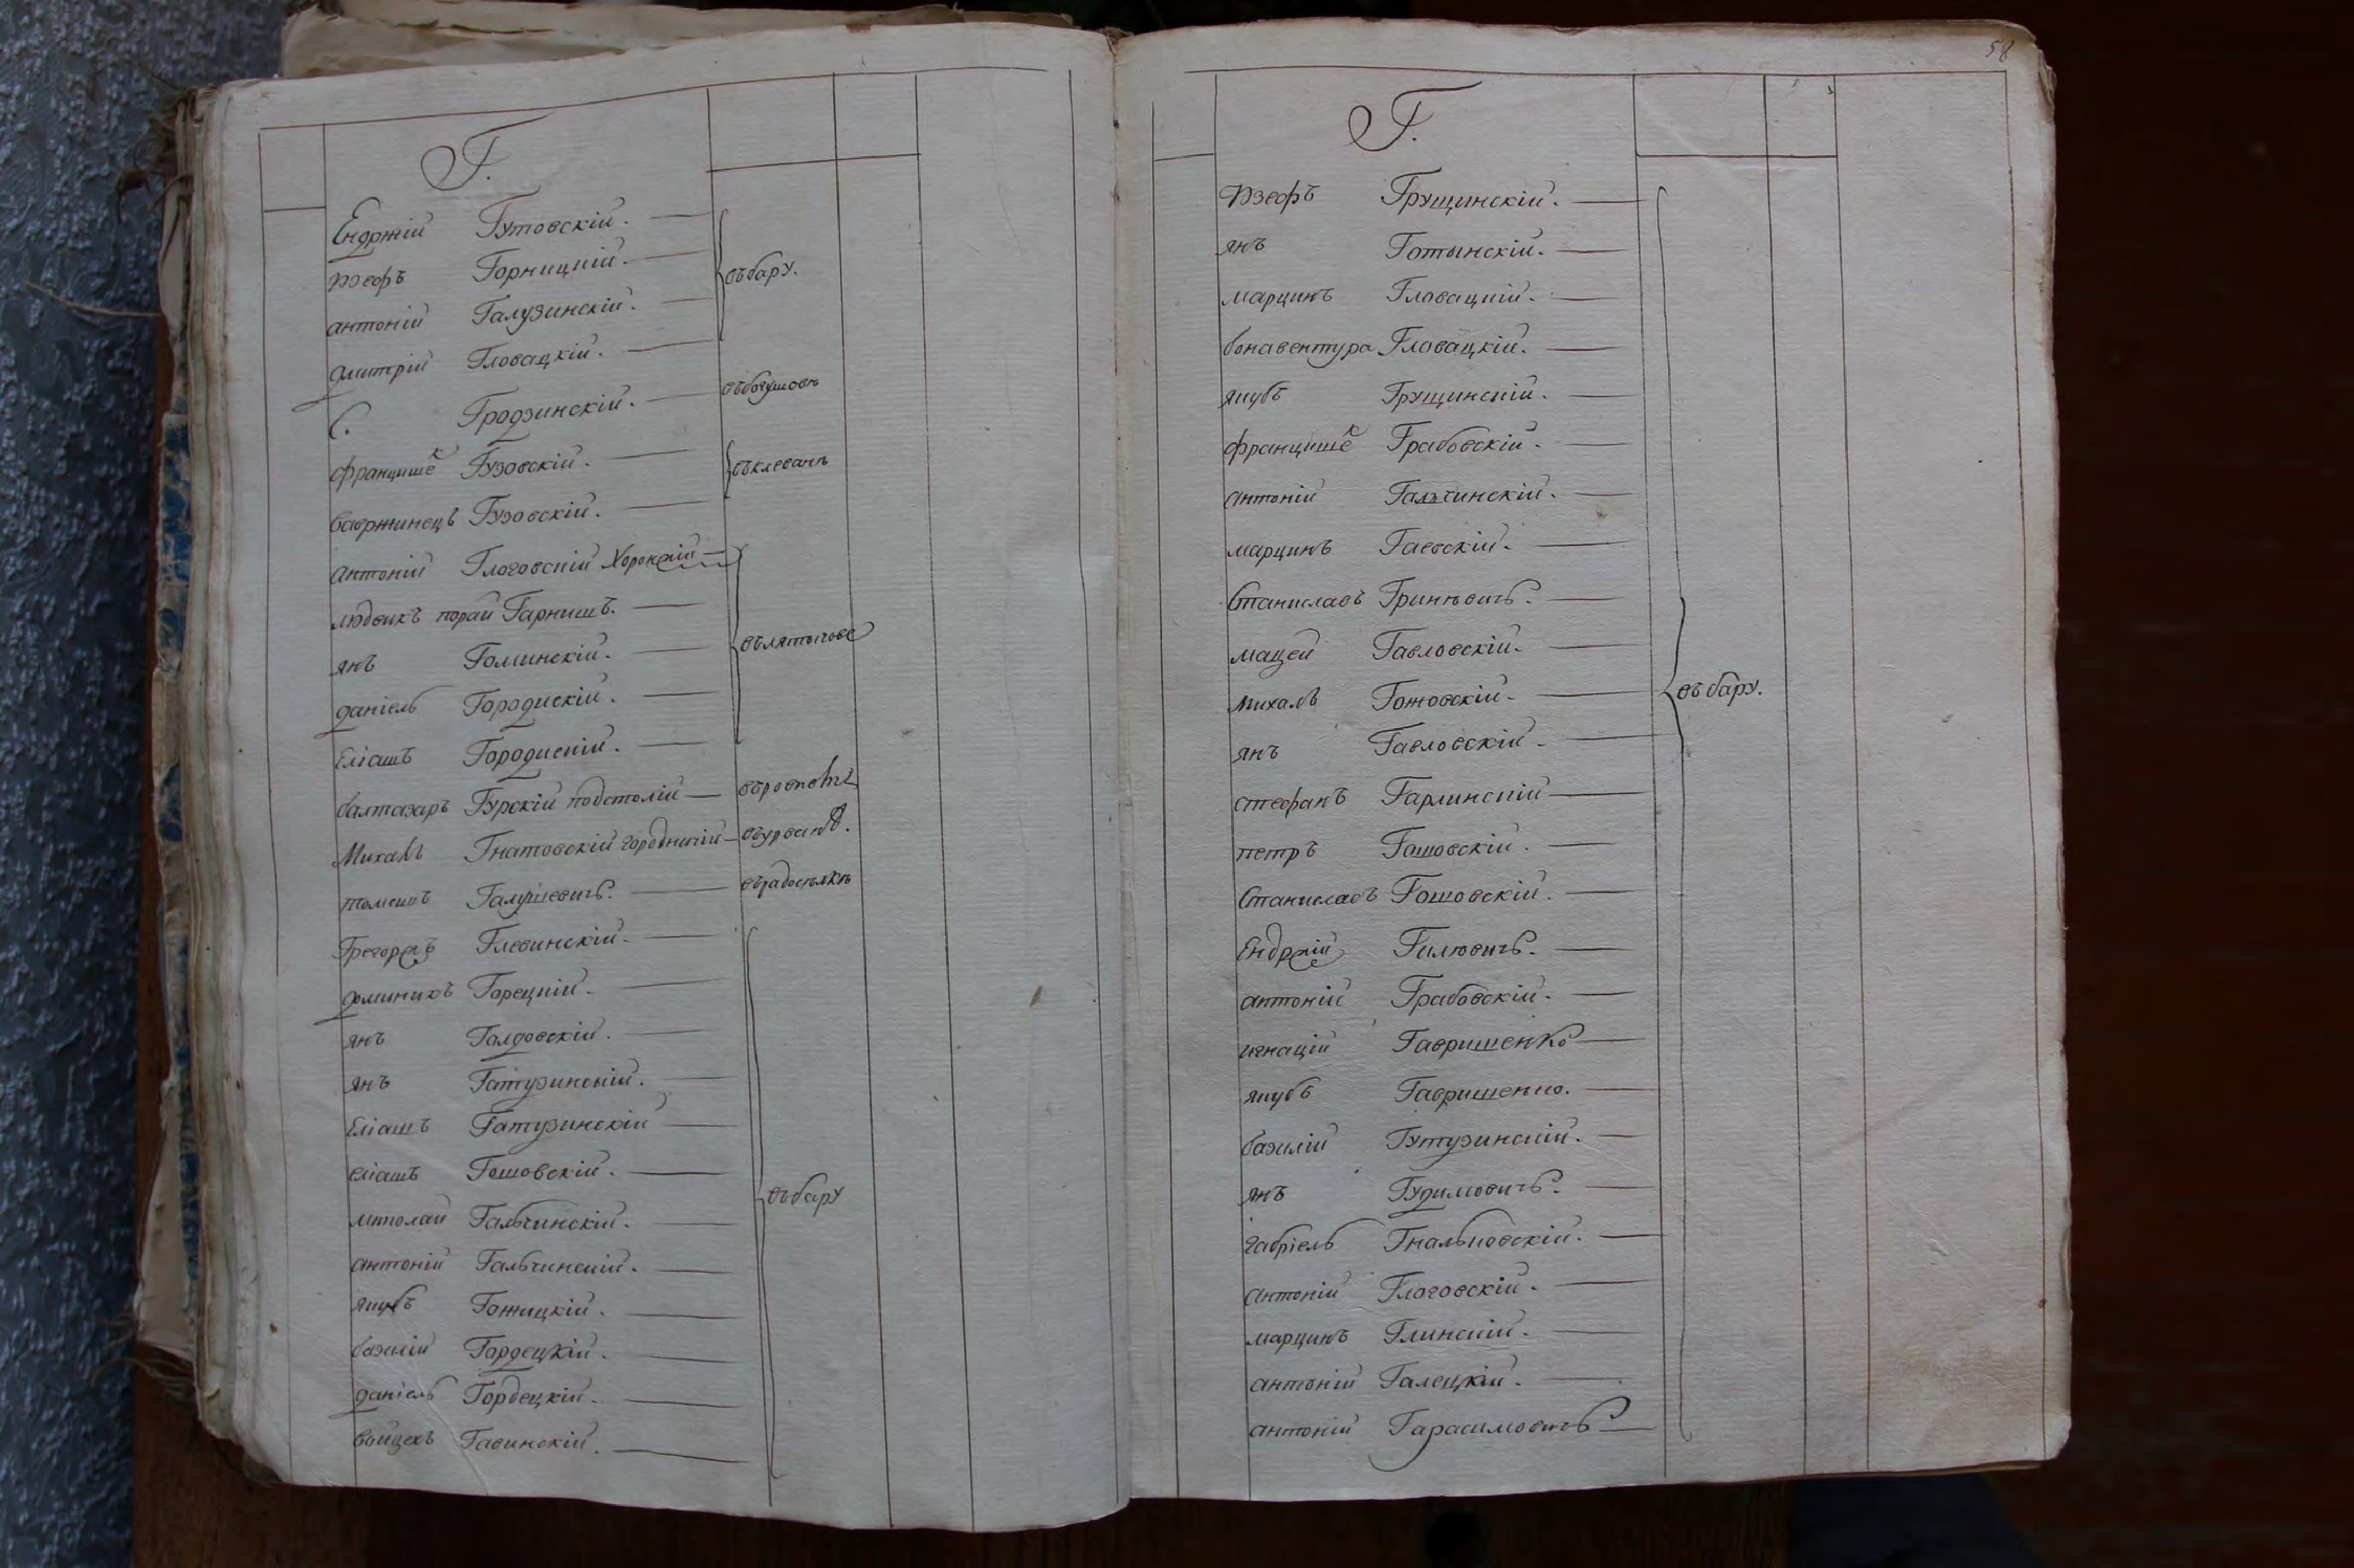 Г.
Ендржій Гутовскій.
Юзефъ Горницкій.
антоній Галузинскій.
въ бару.
дмитрій Гловацкій.
С. Гродзинскій.
францишек Гузовскій.
въ клеванѣ
вавржинецъ Гузовскій.
антоній Глоговскій Хоронжій
людвикъ порай Гарнишъ.
янъ Голинскій.
въ лятычове
даніель Городискій.
Еліашъ Городискій.
балтазаръ Гурскій подстолій
Михалъ Гнатовскій городничій
томашъ Галушевичъ.
Грегоржъ Глевинскій.
доминикъ Горецкій.
янъ Голдовскій.
янъ Гатузинскій.
Еліашъ Гатузинскій
еліашъ Гошовскій.
въ бару
миколай Гальчинскій.
антоній Гальчинскій.
якубъ Гожицкій.
базилій Гордецкій.
даніель Гордецкій.
войцехъ Гавинскій.
58
Г.
Юзефъ Грущинскій.
янъ Готынскій.
марцинъ Гловацкій.
бонавентура Гловацкій.
якубъ Грущинскій.
францишек Грабовскій.
антоній Гальчинскій.
марцинъ Гаевскій.
Станиславъ Гринѣвичъ.
мацей Гавловскій.
михалъ Гожовскій.
въ бару.
янъ Гавловскій.
стефанъ Гарлинскій
петръ Гошовскій.
Станиславъ Гошовскій.
Ендржій Гилювичъ.
антоній Грабовскій.
игнацій Гавришенко
якубъ Гавришенко.
базилій Гутузинскій.
янъ Гудимовичъ.
габріель Гнальковскій.
антоній Глоговскій.
марцинъ Глинскій.
антоній Галецкій.
антоній Гарасимовичъ